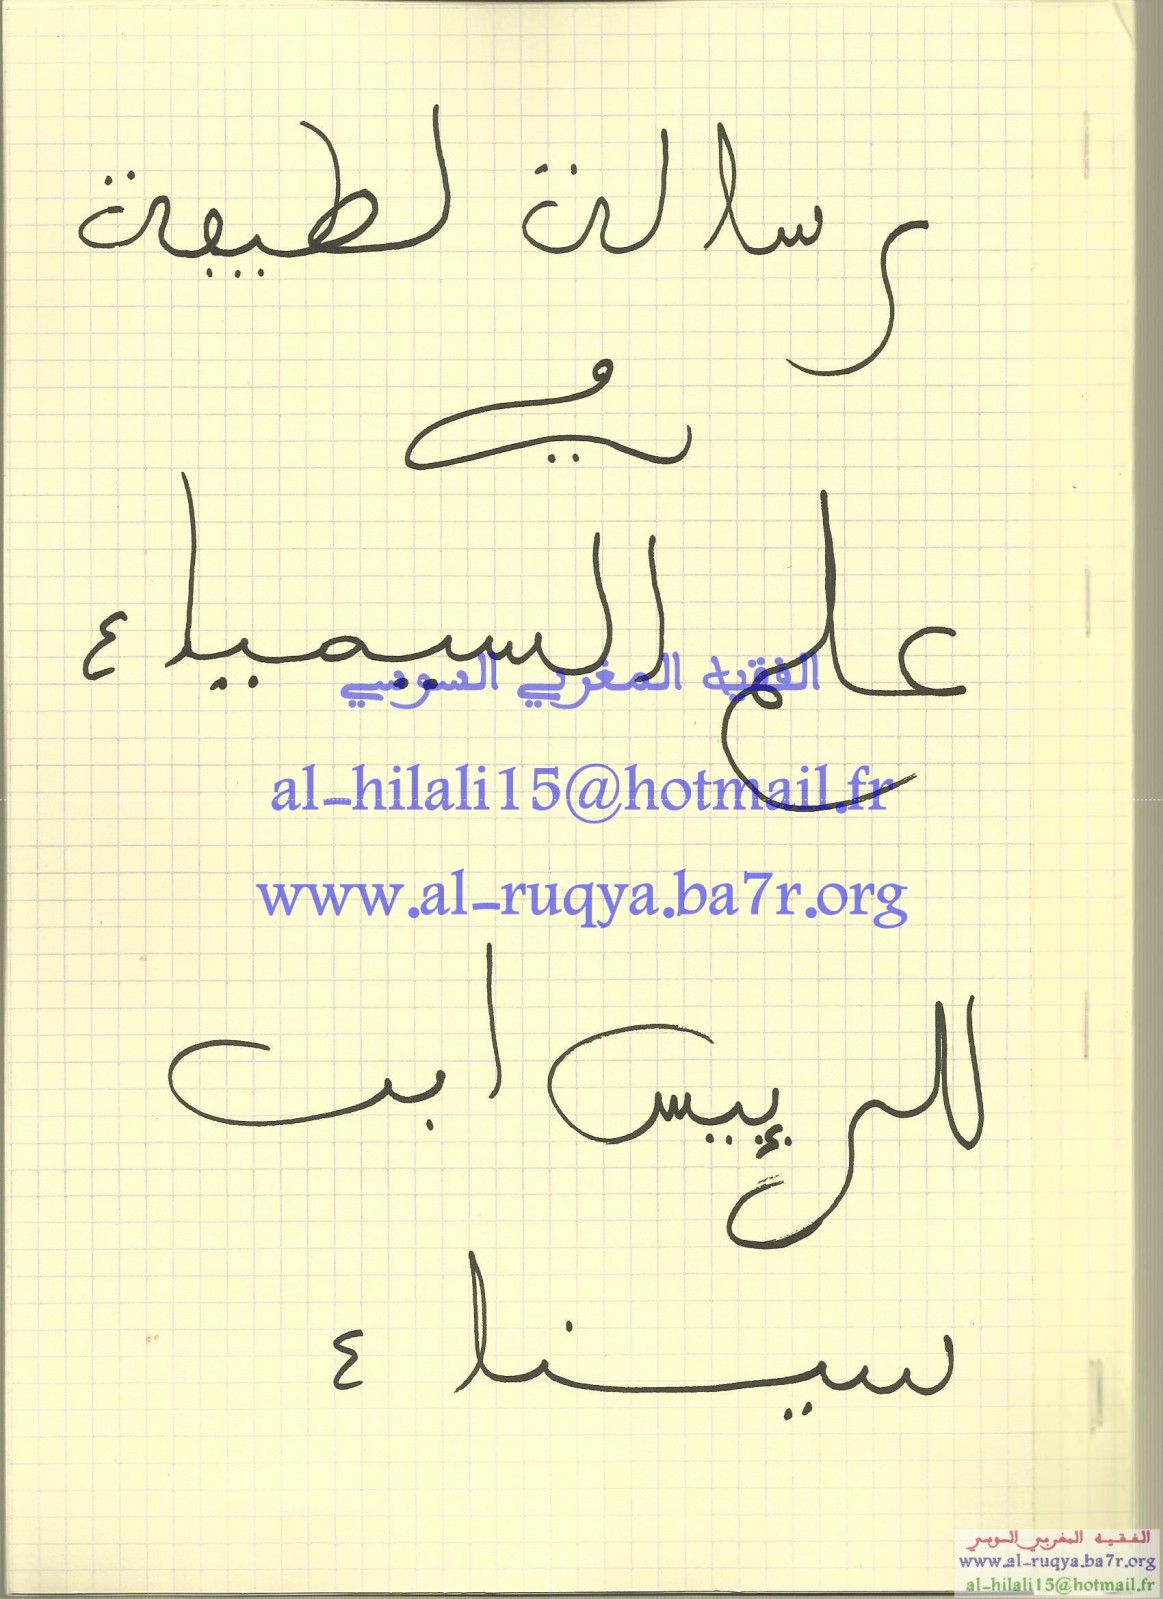 رسالة لطيفة
في
علم السيمياء
الفقيه المغربي السوسي
al-hilali15@hotmail.fr
www.al-ruqya.ba7r.org
للرئيس ابن
سيناء
الفقيه المغربي السوسي
www.al-ruqya.ba7r.org
al-hilali15@hotmail.fr